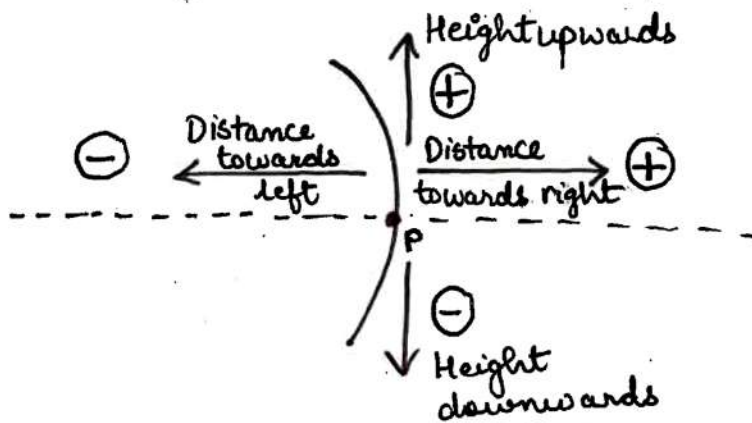 Height upwards
⊕
Distance
towards
left
⊖
Distance
towards right
⊕
P
⊖
Height
downwards